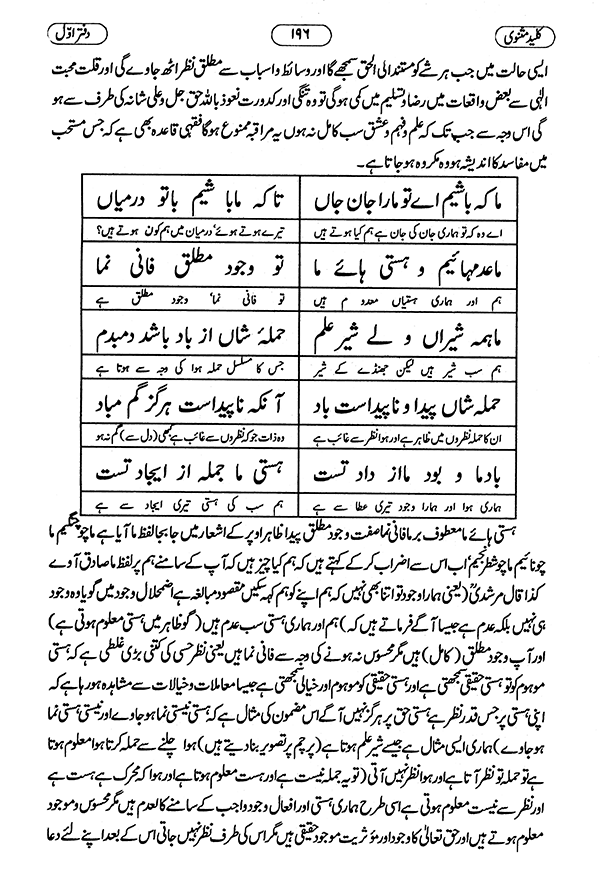 کلید مثنوی ۱۹۶ دفتر اوّل
ایسی حالت میں جب ہر شے کو مستند الی الحق سمجھے گا اور وسائط و اسباب سے مطلق نظر اٹھ جاوے گی اور قلت محبت
الٰہی سے بعض واقعات میں رضا و تسلیم میں کمی ہو گی تو وہ تنگی اور کدورت نعوذ باللہ حق جل و علی شانہ کی طرف سے ہو
گی اس وجہ سے جب تک کہ علم و فہم و عشق سب کامل نہ ہوں یہ مراقبہ ممنوع ہو گا فقہی قاعدہ بھی ہے کہ جس مستحب
میں مفاسد کا اندیشہ ہو وہ مکروہ ہو جاتا ہے۔
ما کہ باشیم اے تو مارا جان جاں تا کہ ما باشیم باتو درمیاں
اے وہ کہ تو ہماری جان کی جان ہے ہم کیا ہوتے ہیں تیرے ہوتے ہوئے درمیان میں ہم کون ہوتے ہیں؟
ما عدمہائیم و ہستی ہائے ما تو وجود مطلق فانی نما
ہم اور ہماری ہستیاں معدوم ہیں تو فانی نما، وجود مطلق ہے
ما ہمہ شیراں و لے شیر علم حملۂ شاں از باد باشد دمبدم
ہم سب شیر ہیں لیکن جھنڈے کے شیر جس کا مسلسل حملہ ہوا کی وجہ سے ہوتا ہے
حملہ شاں پیدا و ناپیداست باد آنکہ ناپیداست ہرگز گم مباد
ان کا حملہ نظروں میں ظاہر ہے اور ہوا نظر سے غائب ہے وہ ذات جو کہ نظروں سے غائب ہے کبھی (دل سے) گم نہ ہو
باد ما و بود ما از داد تست ہستی ما جملہ از ایجاد تست
ہماری ہوا اور ہمارا وجود تیری عطا سے ہے ہم سب کی ہستی تیری ایجاد سے ہے
ہستی ہائے ما معطوف بر ما فانی نما صفت وجود مطلق پیدا ظاہر اوپر کے اشعار میں جابجا لفظ ما آیا ہے ما چو چنگیم ما
چو نائیم ما چو شطرنجیم اب اس سے اضراب کر کے کہتے ہیں کہ ہم کیا چیز ہیں کہ آپ کے سامنے ہم پر لفظ ما صادق آوے
کذا قال مرشدیؒ (یعنی ہمارا وجود تو اتنا بھی نہیں کہ ہم اپنے کو ہم کہہ سکیں مقصود مبالغہ ہے اضمحلال وجود میں گویا وہ وجود
ہی نہیں بلکہ عدم ہے جیسا آگے فرماتے ہیں کہ) ہم اور ہماری ہستی سب عدم ہیں (گو ظاہر میں ہستی معلوم ہوتی ہے)
اور آپ وجود مطلق (کامل) ہیں مگر محسوس نہ ہونے کی وجہ سے فانی نما ہیں یعنی نظر حسی کی کتنی بڑی غلطی ہے کہ ہستی
موہوم کو تو ہستی حقیقی سمجھتی ہے اور ہستی حقیقی کو موہوم اور خیالی سمجھتی ہے جیسا معاملات و خیالات سے مشاہدہ ہو رہا ہے کہ
اپنی ہستی پر جس قدر نظر ہے ہستی حق پر ہرگز نہیں آگے اس مضمون کی مثال ہے کہ ہستی نیستی نما ہو جاوے اور نیستی ہستی نما
ہو جاوے) ہماری ایسی مثال ہے جیسے شیر علم ہوتا ہے (پرچم پر تصویر بنا دیتے ہیں) ہوا چلنے سے حملہ کرتا ہوا معلوم ہوتا
ہے تو حملہ تو نظر آتا ہے اور ہوا نظر نہیں آتی (تو یہ حملہ نیست ہے اور ہست معلوم ہوتا ہے اور ہوا کہ محرک ہے ہست ہے
اور نظر سے نیست معلوم ہوتی ہے اسی طرح ہماری ہستی اور افعال وجود واجب کے سامنے کالعدم ہیں مگر محسوس و موجود
معلوم ہوتے ہیں اور حق تعالیٰ کا وجود اور مؤثریت موجود حقیقی ہیں مگر اس کی طرف نظر نہیں جاتی اس کے بعد اپنے لئے دعا